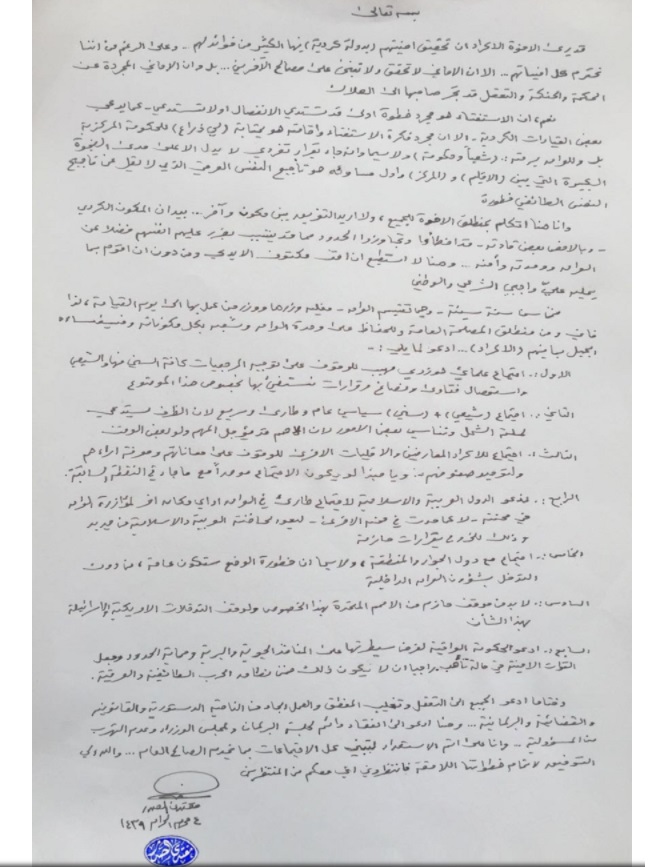 بسمه تعالى
قد يرى الاخوة الاكراد ان تحقيق امنيتهم (بدولة كردية) بها الكثير من فوائد لهم - وعلى الرغم من اننا
نحترم كل امنياتهم .. الا ان الاماني لا تحقق ولا تبنى على مصالح الآخرين ... بل وان الاماني المجردة عن
الحكمة والحنكة والتعقل قد تجر صاحبها الى الهلاك
نعم، ان الاستفتاء هو مجرد خطوة اولى قد تستدعي الانفصال او لا تستدعي - كما يدعي
بعض القيادات الكردية - الا ان مجرد فكرة الاستفتاء واقامته هو بمثابة (لي ذراع) للحكومة المركزية
بل وللعراق برمته: (شعباً وحكومة) ولاسيما وانه جاء بقرار تفردي لا يدل الا على مدى الفجوة
الكبيرة التي بين (الاقليم) و (المركز) واول مساوئه هو تأجيج النفس العرقي الذي لا يقل عن تأجيج
النفس الطائفي خطورة
وانا هنا اتكلم بمنطلق الاخوة للجميع، ولا اريد التفريق بين مكون وآخر ... بيد ان المكون الكردي
- وبالاخص بعض قادته - قد اخطأوا وتجاوزوا الحدود مما قد يتسبب بضرر عليهم انفسهم فضلا عن
العراق ووحدته وأمنه ... وهنا لا استطيع ان اقف مكتوف الايدي ومن دون ان اقوم بما
يمليه عليّ واجبي الشرعي والوطني
فمن سن سنة سيئة - وهي تقسيم العراق - فعليه وزرها ووزر من عمل بها الى يوم القيامة، لذا
فإني ومن منطلق المصلحة العامة وللحفاظ على وحدة العراق وشعبه بكل مكوناته وفسيفسائه
الجميل بما فيهم (الاكراد) ... ادعو لما يلي :-
الاول: اجتماع علمائي فوري مهيب للوقوف على توجيه المرجعيات كافة السني منها والشيعي
واستحصال فتاوى ونصائح وقرارات نستضيء بها بخصوص هذا الموضوع
الثاني: اجتماع (شيعي) + (سني) سياسي عام وطارئ وسريع لان الظرف يستدعي
لملمة الشمل وتناسي بعض الامور لان الاهم قد يؤجل المهم ولو لبعض الوقت
الثالث: اجتماع للاكراد المعارضين والاقليات الاخرى للوقوف على معاناتهم ومعرفة اراءهم
ولتوحيد صفوفهم .. ويا حبذا لو يكون الاجتماع موحداً مع ما جاء في النقطة السابقة.
الرابع: ندعو الدول العربية والاسلامية لاجتماع طارئ في العراق او اي مكان اخر لمؤازرة العراق
في محنته - لا كما حدث في محنه الاخرى - ليعود لحاضنته العربية والاسلامية من جديد
وذلك للخروج بقرارات حازمة
الخامس: اجتماع مع دول الجوار والمنطقة، ولاسيما ان خطورة الوضع ستكون عامة، من دون
التدخل بشؤون العراق الداخلية
السادس: لا بد من موقف حازم من الامم المتحدة بهذا الخصوص ولوقف التدخلات الامريكية والاسرائيلية
بهذا الشأن
السابع: ادعو الحكومة العراقية لفرض سيطرتها على المنافذ الجوية والبرية وحماية الحدود وجعل
القوات الامنية في حالة تأهب راجيا ان لا يكون ذلك ضمن نطاق الحرب الطائفية والعرقية.
وختاما ادعو الجميع الى التعقل وتغليب المنطق والعمل الجاد من الناحية الدستورية والقانونية
والقضائية والبرلمانية ... وهنا ادعو الى انعقاد دائم لجلسة البرلمان ومجلس الوزراء وعدم التهرب
من المسؤولية .. وانا على اتم الاستعداد لتبني كل الاجتماعات بما يخدم الصالح العام ... والله ولي
التوفيق لاتمام خطواتنا اللاحقة فانتظروني اني معكم من المنتظرين
مقتدى الصدر
٤ محرم الحرام ١٤٣٩